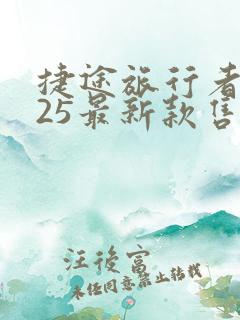 捷途旅行者
25最新款售
汪後富
未经同意禁止转载